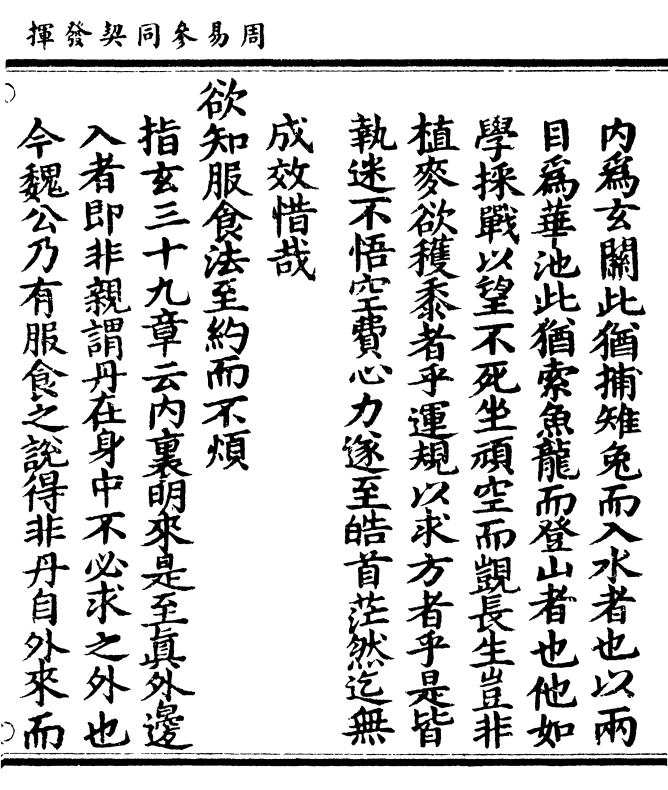 周易參同契發揮
內爲玄關此猶捕雉兔而入水者也以兩
目爲華池此猶索魚龍而登山者也他如
學採戰以望不死坐頑空而覬長生豈非
植麥欲穫黍者乎運規以求方者乎是皆
執迷不悟空費心力遂至皓首茫然迄無
成效惜哉
欲知服食法至約而不煩
指玄三十九章云內裏明來是至眞外邊
入者即非親謂丹在身中不必求之外也
今魏公乃有服食之說得非丹自外來而